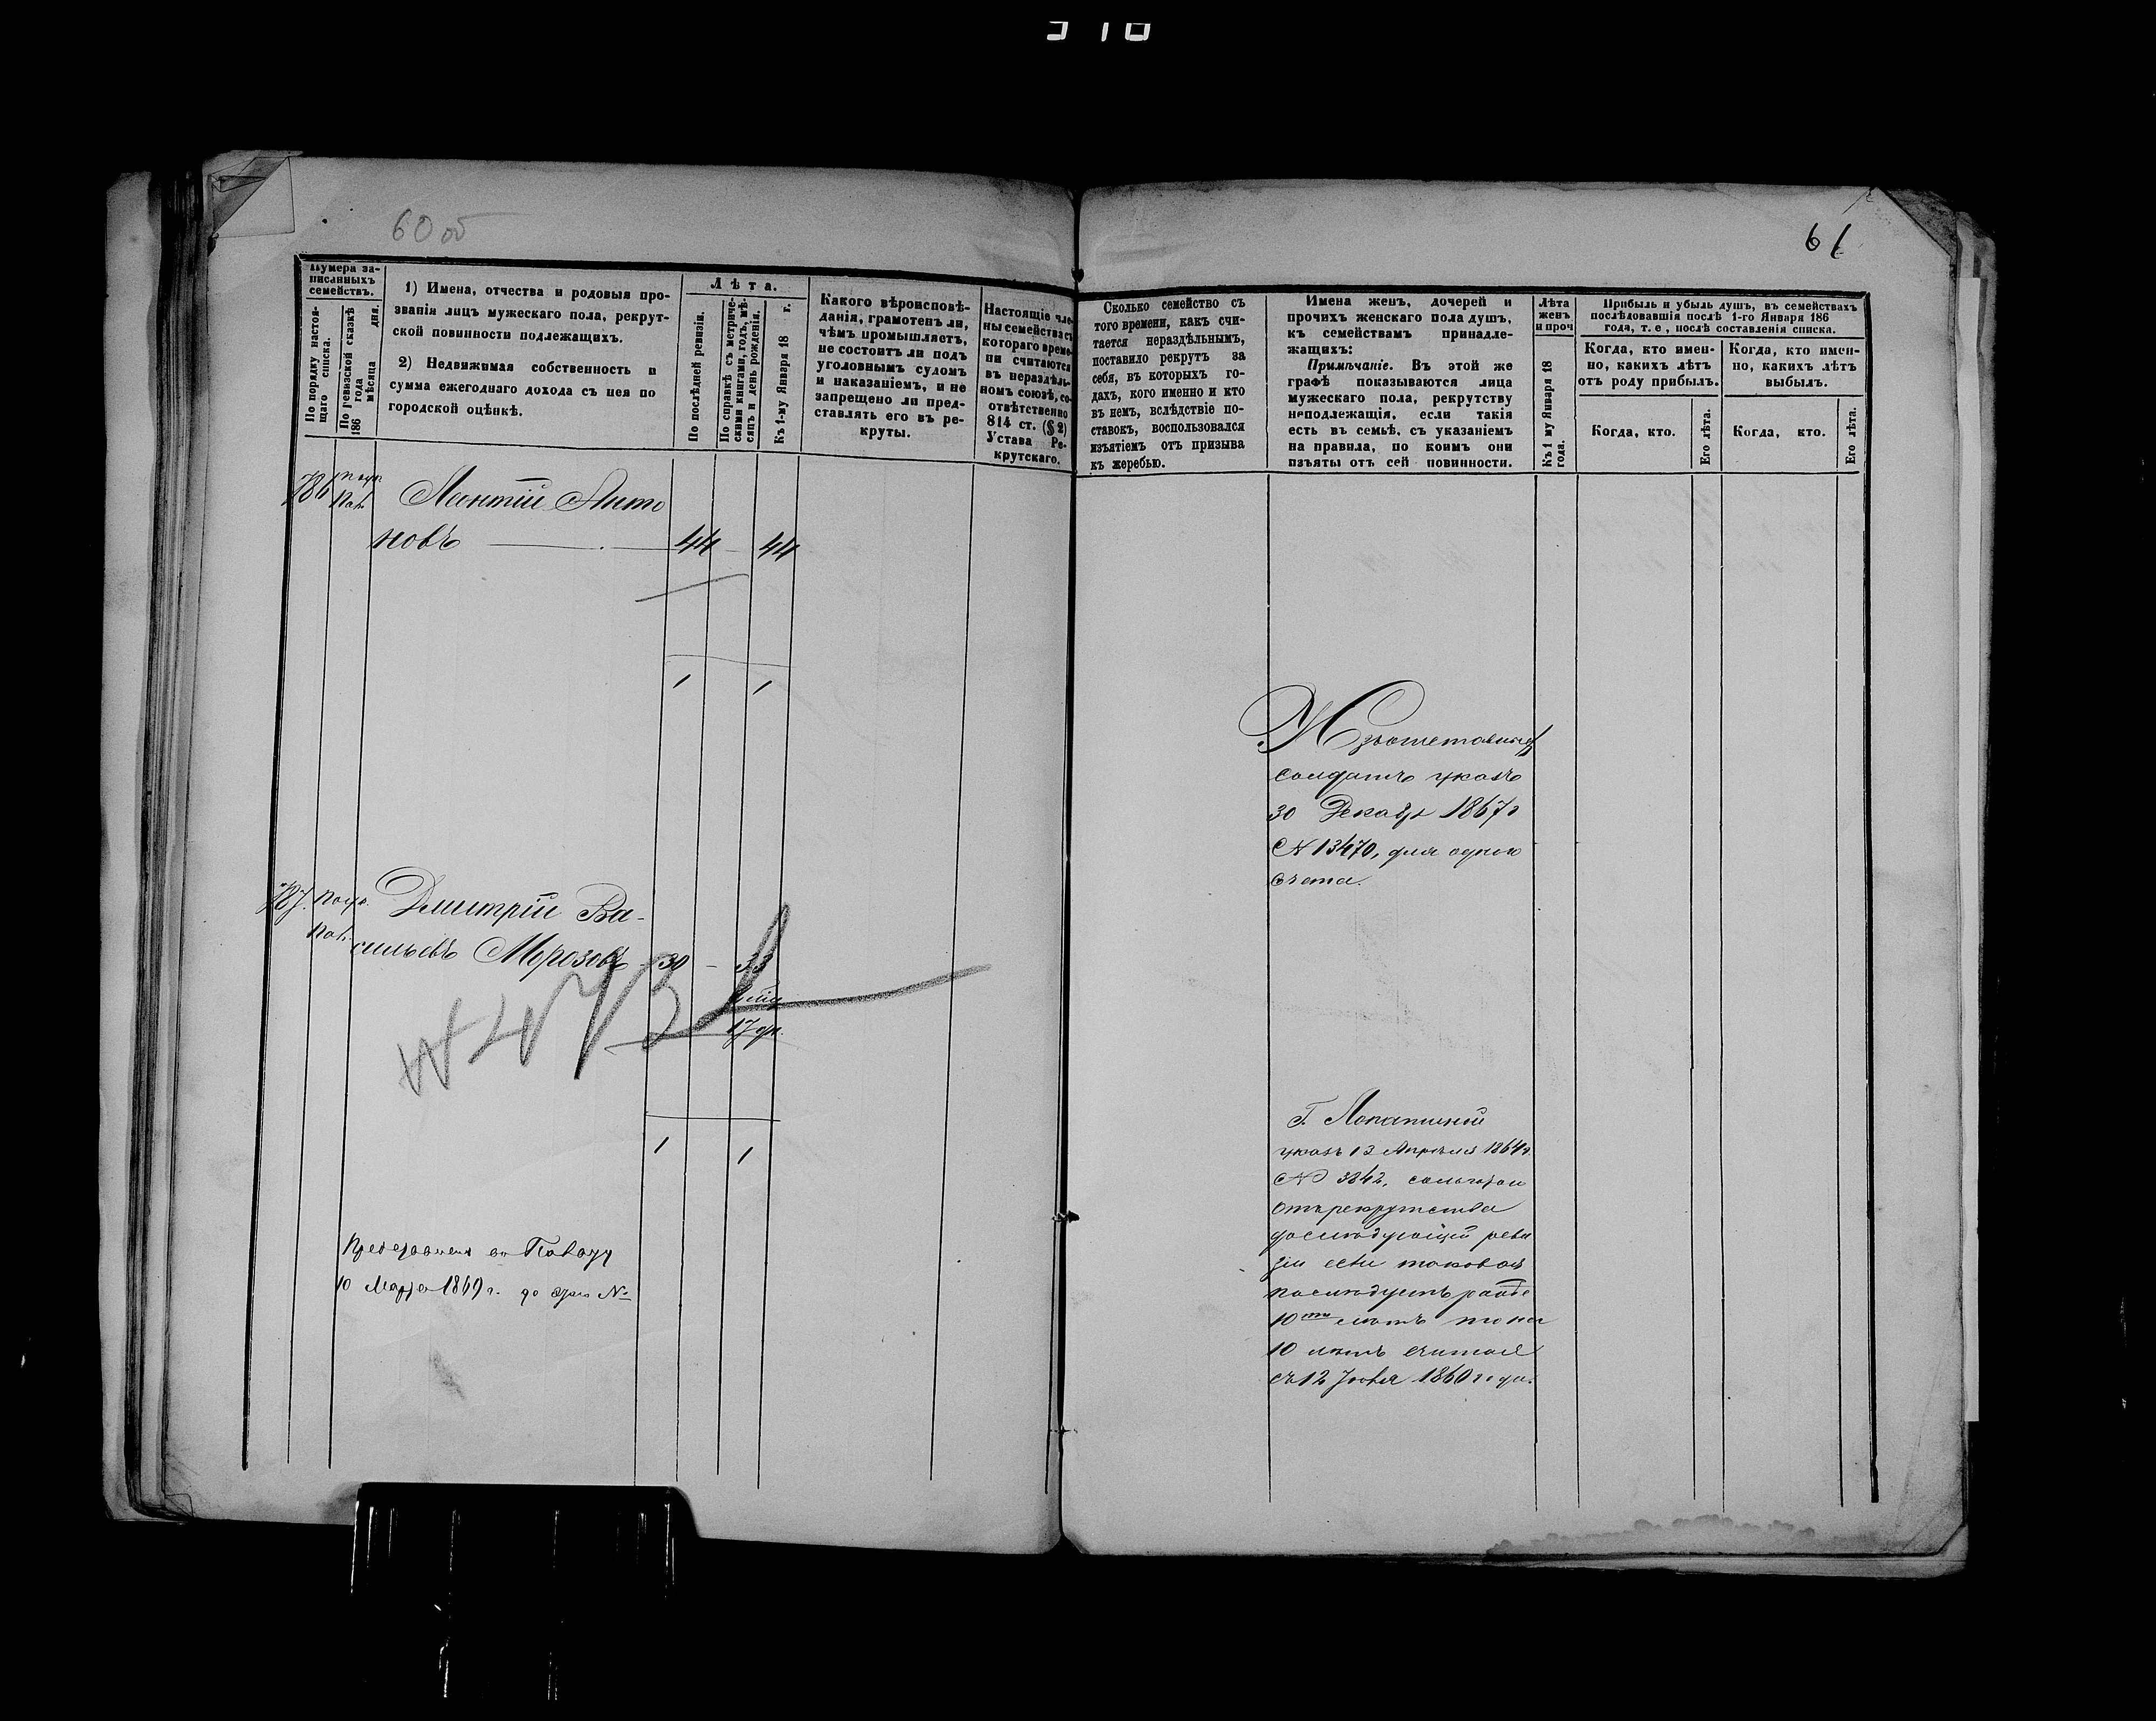 60 об
61
Нумера за-
писанныхъ
семействъ.
По порядку настоя-
щаго списка.
По ревизской сказкѣ
186 года
мѣсяца дня.
1) Имена, отчества и родовыя про-
званія лицъ мужескаго пола, рекрут-
ской повинности подлежащихъ.
2) Недвижимая собственность и
сумма ежегоднаго дохода съ нея по
городской оцѣнкѣ.
Лѣта.
По послѣдней ревизіи.
По справкѣ съ метриче-
скими книгами, годъ, мѣ-
сяцъ и день рожденія.
Къ 1-му Января 18 г.
Какого вѣроисповѣ-
данія, грамотенъ ли,
чѣмъ промышляетъ,
не состоитъ ли подъ
уголовнымъ судомъ
и наказаніемъ, и не
запрещено ли пред-
ставлять его въ ре-
круты.
Настоящіе чле-
ны семейства съ
котораго време-
ни считаются
въ нераздѣль-
номъ союзѣ, со-
отвѣтственно
814 ст. (§ 2)
Устава Ре-
крутскаго.
Сколько семейство съ
того времени, какъ счи-
тается нераздѣльнымъ,
поставило рекрутъ за
себя, въ которыхъ го-
дахъ, кого именно и кто
въ немъ, вслѣдствіе по-
ставокъ, воспользовался
изъятіемъ отъ призыва
къ жеребью.
Имена женъ, дочерей и
прочихъ женскаго пола душъ,
къ семействамъ принадле-
жащихъ:
Примѣчаніе. Въ этой же
графѣ показываются лица
мужескаго пола, рекрутству
неподлежащія, если такія
есть въ семьѣ, съ указаніемъ
на правила, по коимъ они
изъяты отъ сей повинности.
Лѣта
женъ
и проч
Къ 1 му Января 18
года.
Прибыль и убыль душъ, въ семействахъ
послѣдовавшія послѣ 1-го Января 186
года, т. е, послѣ составленія списка.
Когда, кто имен-
но, какихъ лѣтъ
отъ роду прибылъ.
Когда, кто.
Его лѣта.
Когда, кто имен-
но, какихъ лѣтъ
выбылъ.
Когда, кто.
Его лѣта.
786 Леонтій Анто
новъ 44 — 44
1 1
солдатъ указъ
30 Декабря 1867 г
№ 13470, для одного
счета.
787. Дмитрій Ва-
сильевъ Морозовъ 30 — 33
17 дн.
№ 473
1 1
10 Марта 1869 г. №
Г. Лопатиной
указъ 13 Апрѣля 1864 г.
№ 3842,
отъ рекрутства
до слѣдующей реви
зіи если таковая
послѣдуетъ
10 лѣтъ считая
съ 12 1860 года.